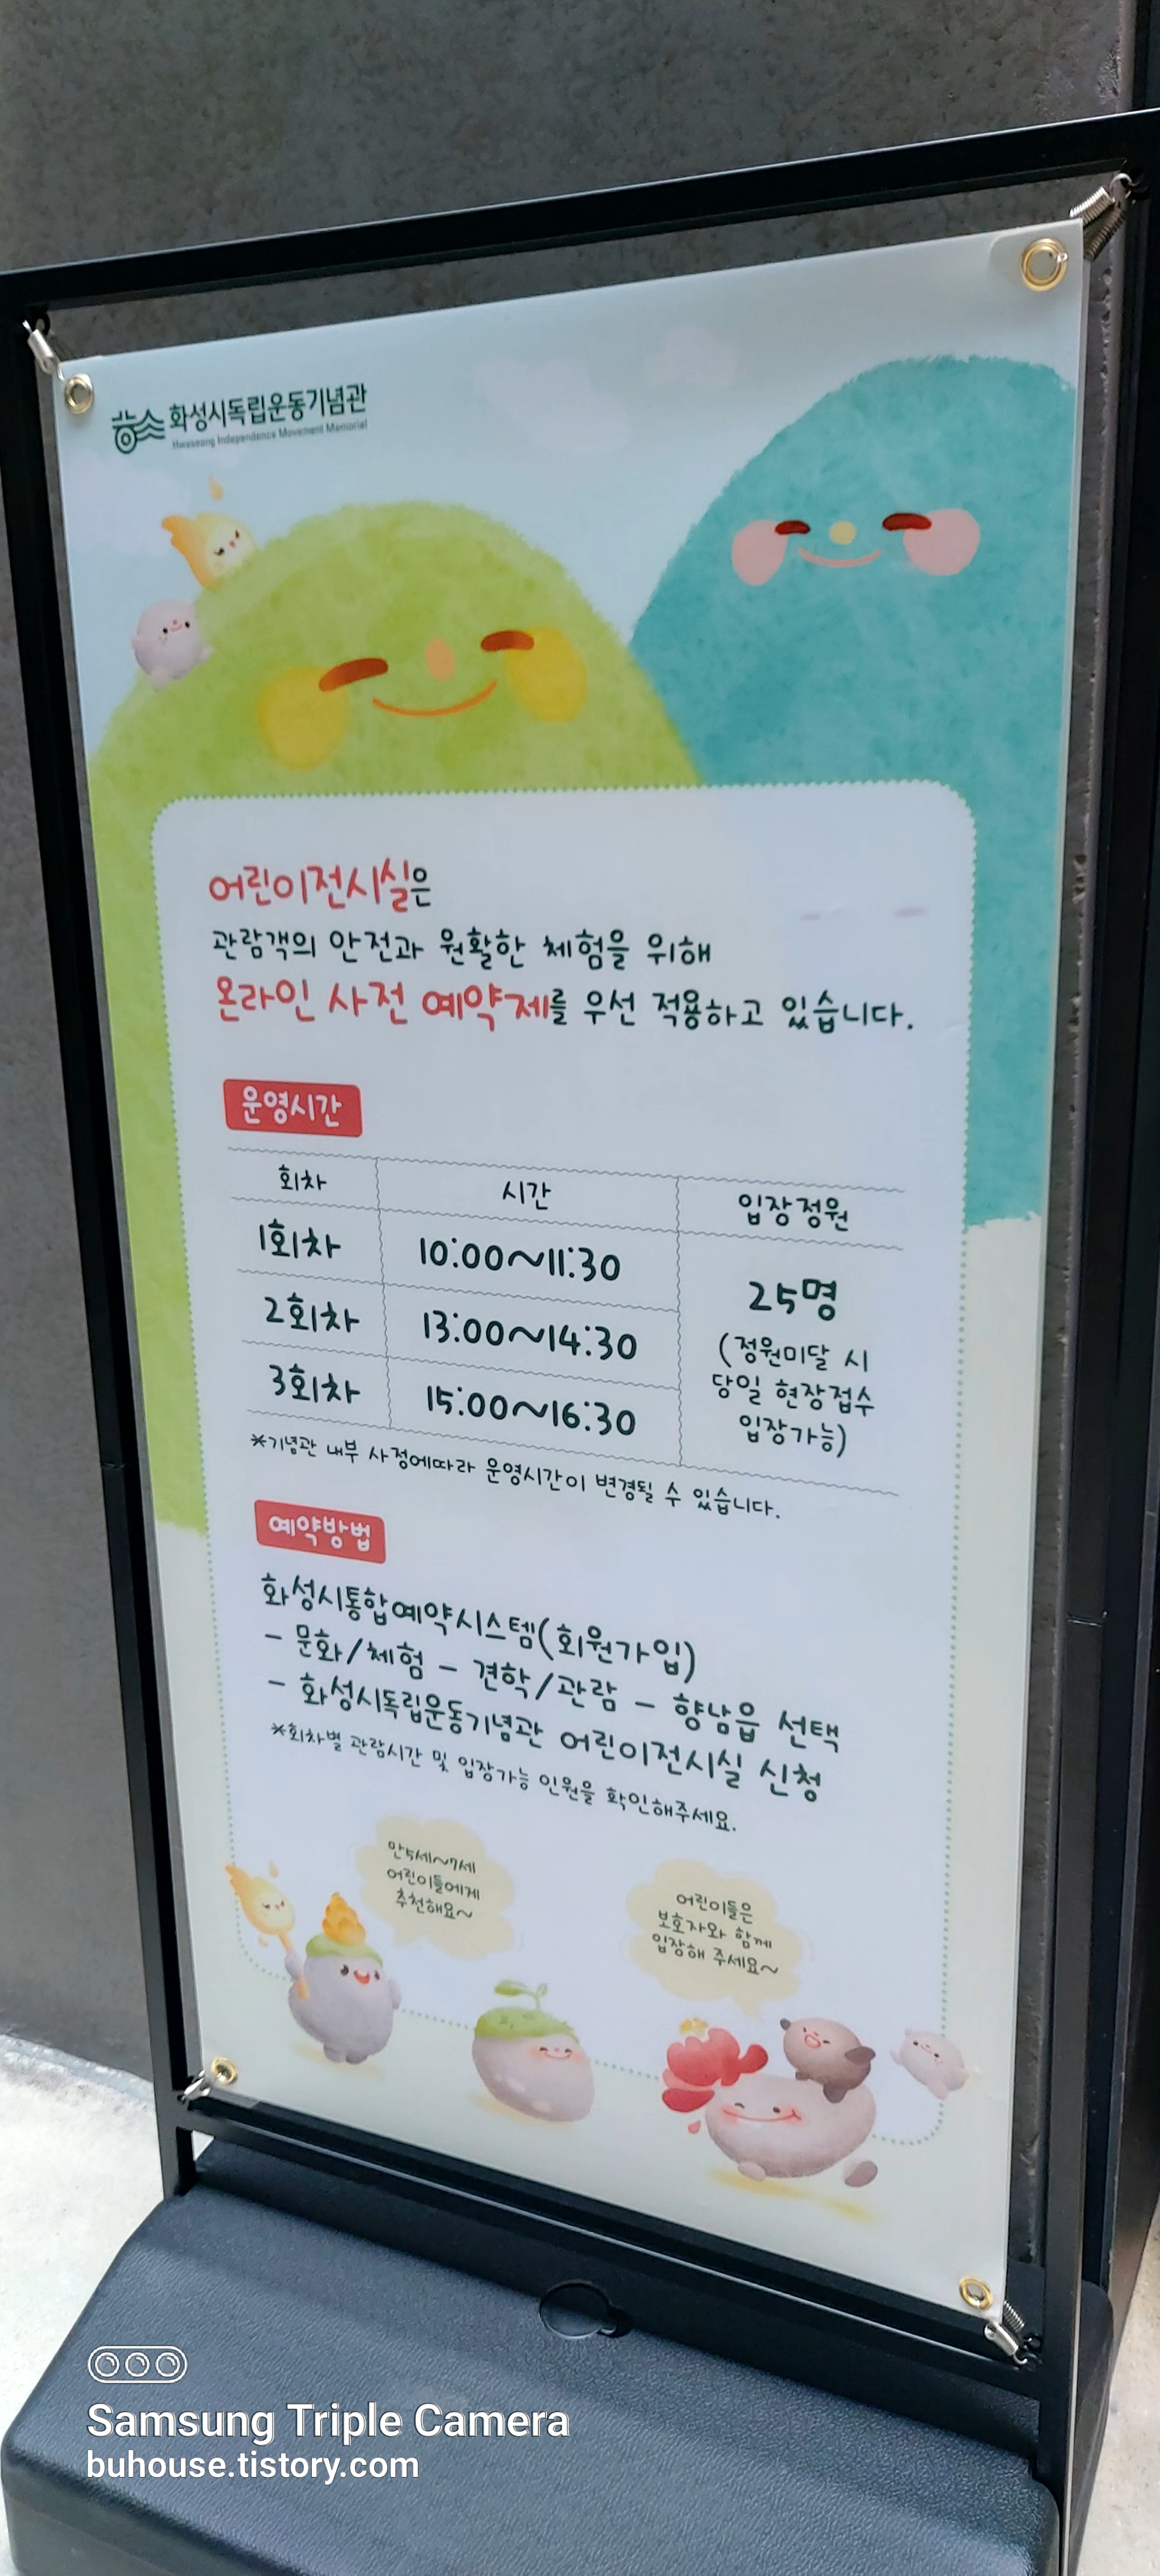 화성시독립운동기념관
Hwaseong Independence Movement Memorial
어린이전시실은
관람객의 안전과 원활한 체험을 위해
온라인 사전 예약제를 우선 적용하고 있습니다.
운영시간
회차 시간 입장정원
1회차 10:00~11:30
2회차 13:00~14:30
3회차 15:00~16:30
25명
(정원미달 시
당일 현장접수
입장가능)
*기념관 내부 사정에따라 운영시간이 변경될 수 있습니다.
예약방법
화성시통합예약시스템(회원가입)
- 문화/체험 - 견학/관람 - 향남읍 선택
- 화성시독립운동기념관 어린이전시실 신청
*회차별 관람시간 및 입장가능 인원을 확인해주세요.
만5세~7세
어린이들에게
추천해요~
어린이들은
보호자와 함께
입장해 주세요~
Samsung Triple Camera
buhouse.tistory.com